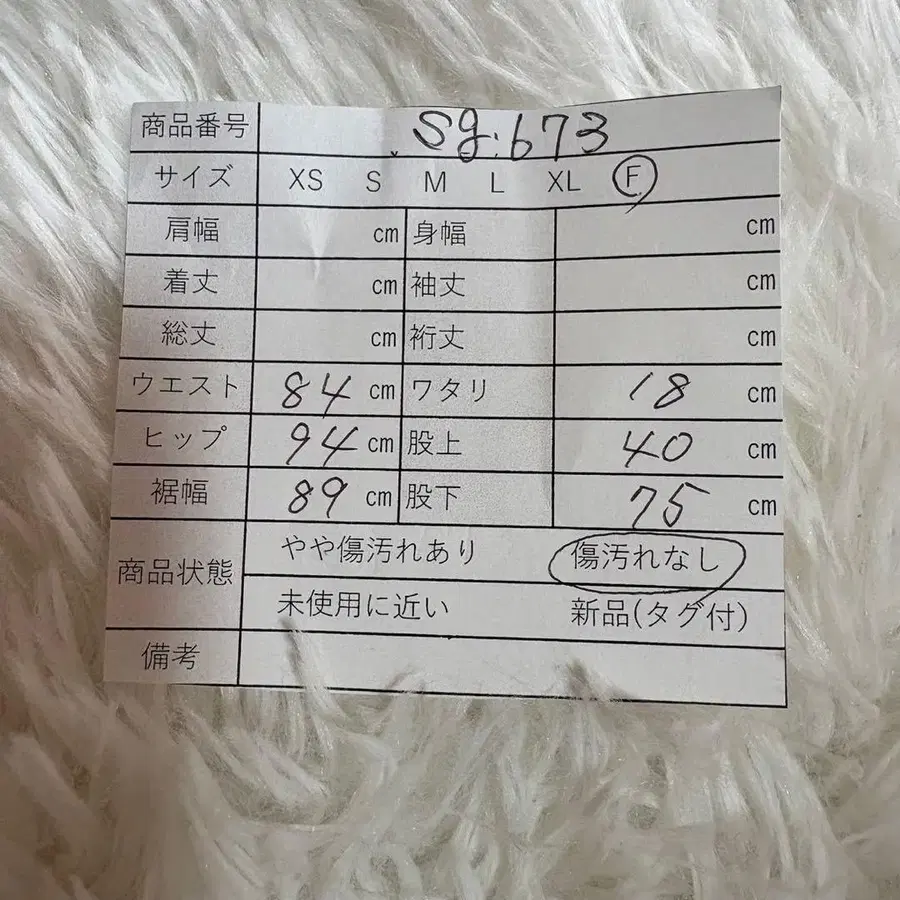 商品番号 sg.673
サイズ XS S M L XL F
肩幅 cm 身幅 cm
着丈 cm 袖丈 cm
総丈 cm 裄丈 cm
ウエスト 84 cm ワタリ 18 cm
ヒップ 94 cm 股上 40 cm
裾幅 89 cm 股下 75 cm
商品状態 やや傷汚れあり 傷汚れなし
未使用に近い 新品(タグ付)
備考